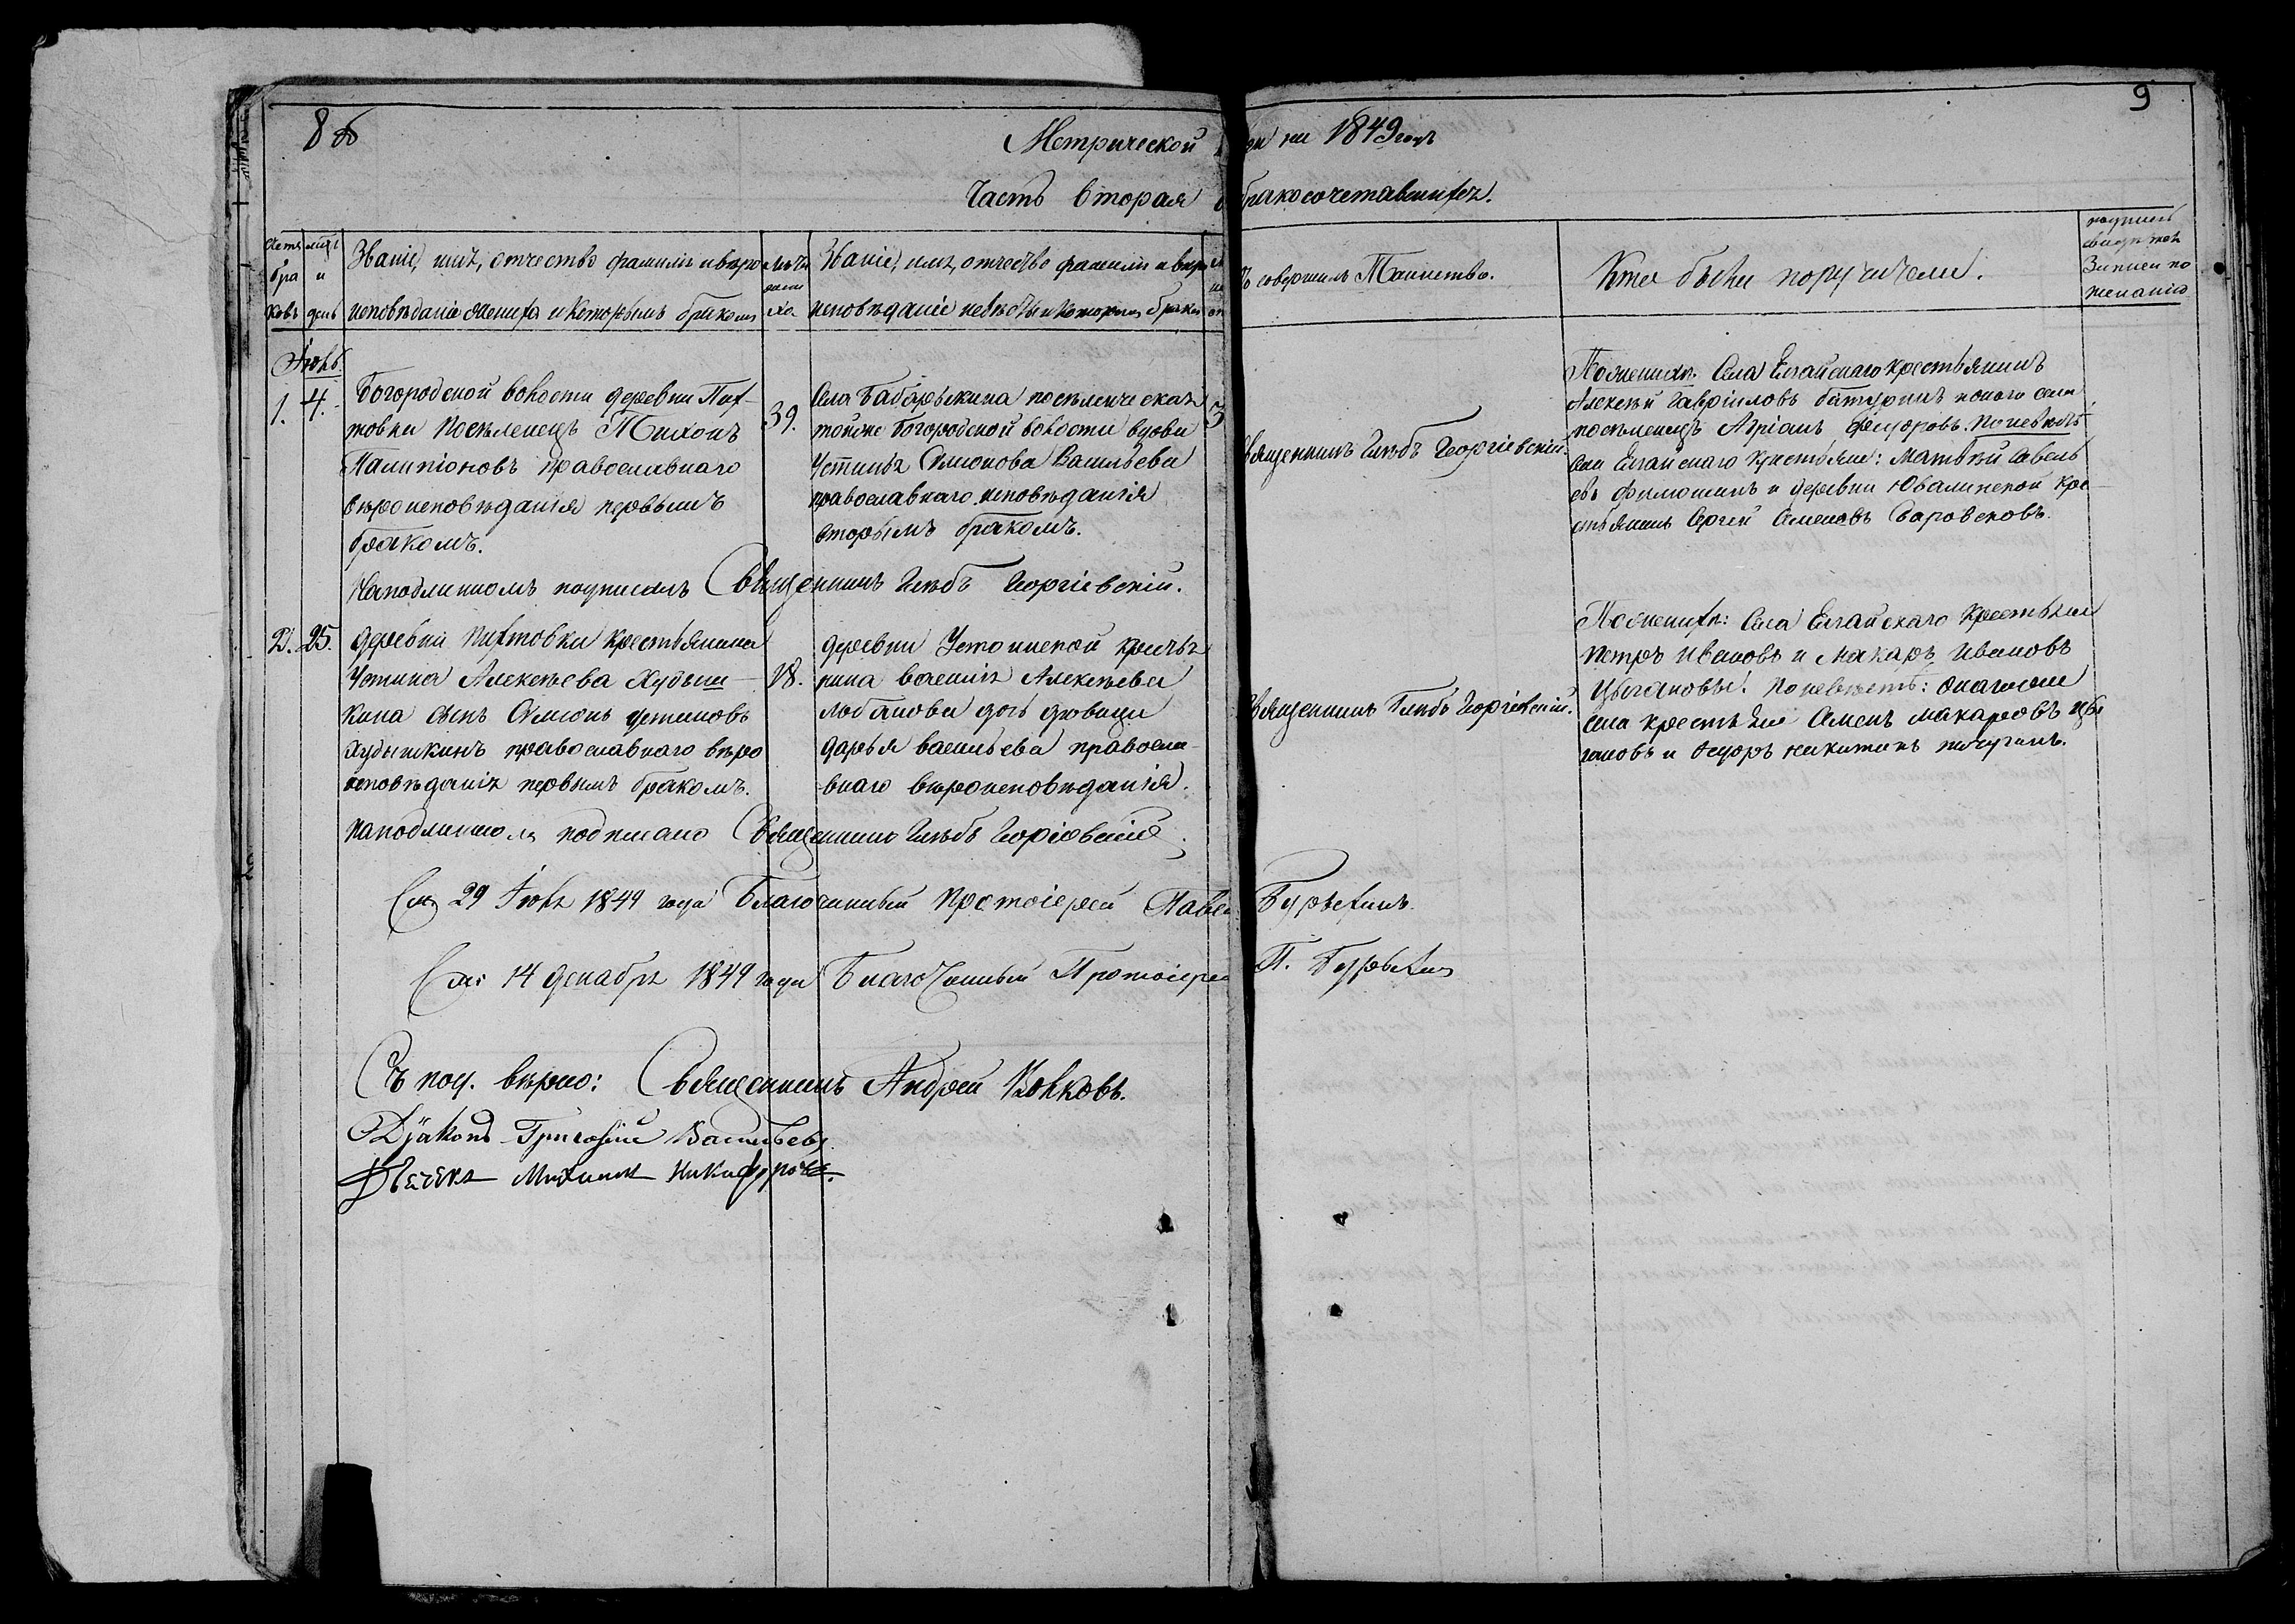 8 об
9
Метрической
ги на 1849 годъ
Часть вторая
бракосочетавшихся.
Счетъ браковъ
мцъ и день
Званіе, имя, отчество фамилія и вѣро
исповѣданіе жениха и которымъ бракомъ
лѣта жениха
Званіе, имя, отчество фамилія и вѣро
исповѣданіе невѣсты и которымъ бракомъ
ъ совершилъ Таинство.
Кто были поручители.
подписи
свидѣтел
Записи по
желанію
Іюль.
1. 4.
Богородской волости деревни Пих-
товки Поселенецъ Тихонъ
православнаго
вѣроисповѣданія первымъ
бракомъ.
39.
Села Бабарыкина поселенческая
тойже Богородской волости вдова
Устинья Симонова Васильева
православнаго исповѣданія
вторымъ бракомъ.
3
Священникъ Глѣбъ Георгіевскій.
По женихѣ: Села Елгайскаго крестьянинъ
Алексѣй Гавриловъ Батуринъ того села
поселенецъ Агріанъ Федоровъ. По невѣстѣ
Села Елгайскаго крестьяне: Матвѣй Савель
евъ Филюшинъ и деревни Ювалинской кре-
стьянинъ Сергей Семеновъ Боровсковъ.
На подлинномъ подписалъ Священникъ Глѣбъ Георгіевскій.
2. 25.
деревни Пихтовки крестьянина
Устина Алексѣева Худыш-
кина сынъ Симонъ Устиновъ
Худышкинъ православнаго вѣро
исповѣданія первымъ бракомъ.
18.
деревни крестья
нина Василія Алексѣева
Лобанова дочь дѣвица
Дарья Васильева правосла-
внаго вѣроисповѣданія.
Священникъ Глѣбъ Георгіевскій.
По женихѣ: Села Елгайскаго крестьяне
Петръ Ивановъ и Макаръ Ивановъ
Цыгановы. По невѣстѣ: онагоже
села крестьяне Семенъ Макаровъ Цы
гановъ и Федоръ Никитинъ Пичугинъ.
На подлинномъ подписано Священникъ Глѣбъ Георгіевскій.
См. 29 Іюля 1849 года Благочинный Протоіерей Павел
См: 14 декабря 1849 года Благочинный Протоіерей П.
Съ под. вѣрно: Священникъ Андрей Волковъ.
Діаконъ Григорій Васильевъ
Дьячекъ Михаилъ Никифоровъ.